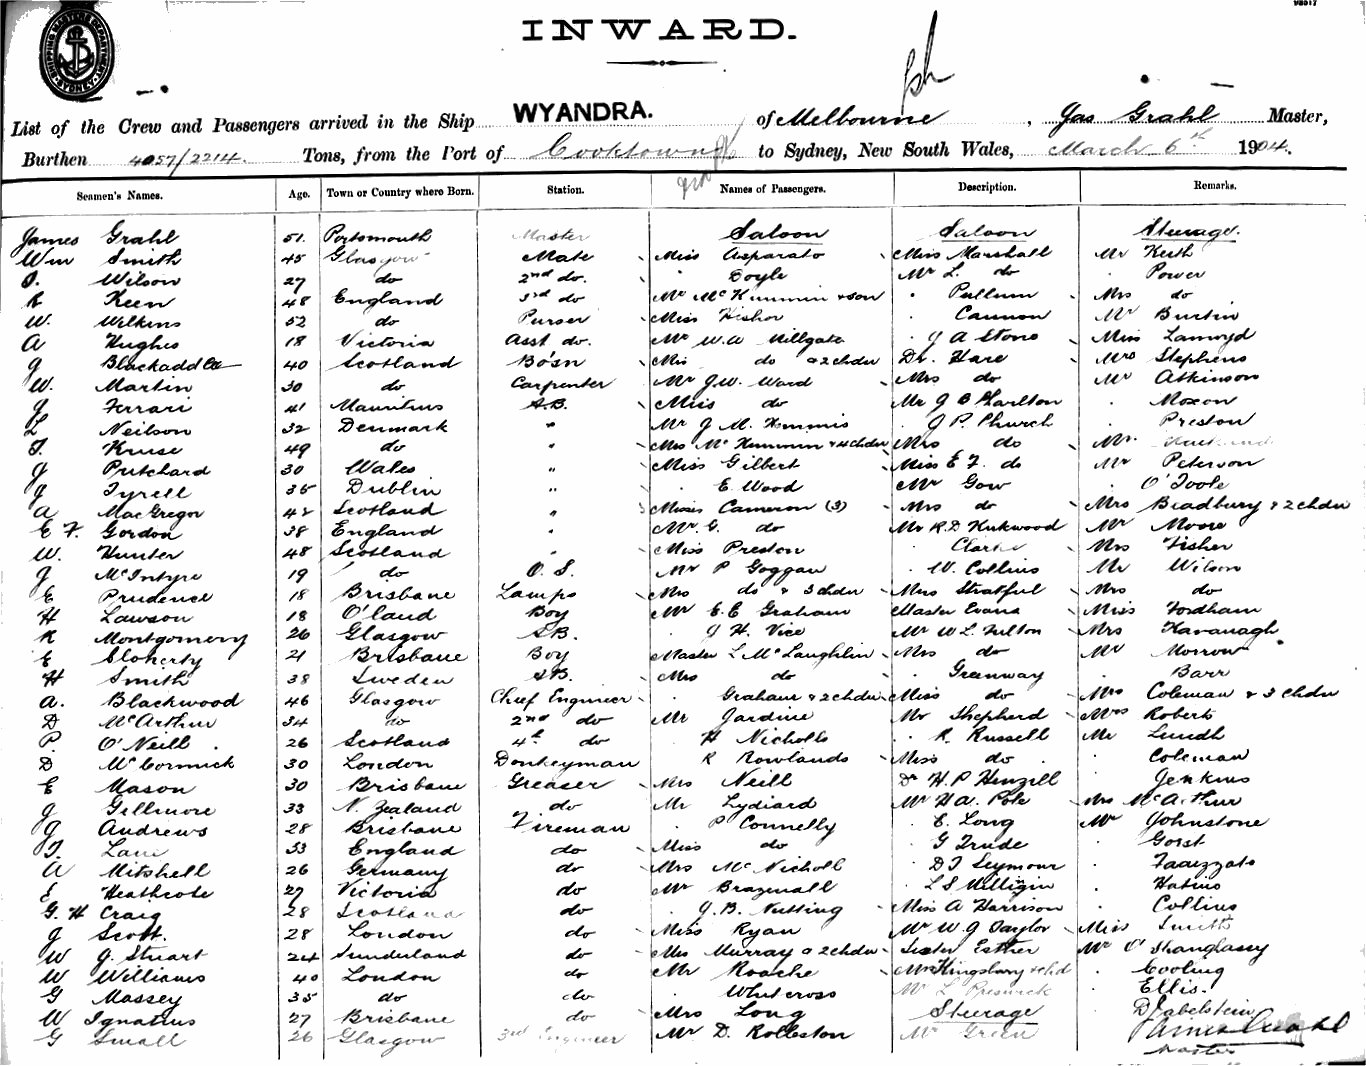 INWARD.
SHIPPING MASTER'S DEPARTMENT SYDNEY
List of the Crew and Passengers arrived in the Ship WYANDRA. of Melbourne, Jas Grahl Master,
Burthen 4057/2214. Tons, from the Port of Cooktown to Sydney, New South Wales, March 6th 1904.
Seamen's Names. Age. Town or Country where Born. Station. Names of Passengers. Description. Remarks.
James Grahl 51. Portsmouth Master Saloon Saloon Steerage.
Wm Smith 45 Glasgow Mate Miss Asparato Miss Marshall Mr Keith
Wilson 27 do 2nd do. Doyle Mr L. do Power
R Keen 48 England 3rd do Mr McKimmin & son Pullum Mrs do
W. Wilkins 52 do Purser Miss Fisher Cannon Mr Burtin
A Hughes 18 Victoria Asst do. Mr W.A Millgate J A Stone Miss
G 40 Scotland Bo'sn Mrs do & 2 chdn Dr. Hare Mrs Stephens
W. Martin 30 do Carpenter Mr J.W. Ward Mrs do Mr Atkinson
J Ferrari 41 Mauritius A.B. Miss do Mr J B Charlton Moxon
L Neilson 32 Denmark " Mr J. M. J P Church Preston
T. Kruse 49 do " Mrs McKimmin & 4 chdn Mrs do Mr.
J Pritchard 30 Wales " Miss Gilbert Miss E F. do Mr Peterson
J Tyrell 35 Dublin " E Wood Mr Gow O'Toole
A MacGregor 42 Scotland " Misses Cameron (3) Mrs do Mrs Bradbury & 2 chdn
E F. Gordon 38 England " Mr. G. do Mr R.D Kirkwood Mr Moore
W. Hunter 48 Scotland " Miss Preston Clarke Mrs Fisher
J McIntyre 19 do O.S. Mr P Goggan W. Collins Mr Wilson
E Prudence 18 Brisbane Lamps Mrs do & 3 chdn Mrs Stratful Mrs do
H Lawson 18 Q'land Boy Mr E.E Graham Master Evans Miss Fordham
R Montgomery 26 Glasgow A.B. J H. Vice Mr W L. Fulton Mrs Kavanagh
E Cloherty 21 Brisbane Boy Master L McLaughlin Mrs do Mr Morrow
H Smith 38 Sweden A.B. Mrs do Greenway Barr
A. Blackwood 46 Glasgow Chief Engineer Graham & 2 chdn Miss do Mrs Coleman & 3 chdn
D McArthur 34 do 2nd do Mr Jardine Mr Shepherd Mrs Roberts
P. O'Neill. 26 Scotland 4th do H Nicholls R. Russell Mr Lundh
D McCormick 30 London Donkeyman R Rowlands Miss do Coleman
E Mason 30 Brisbane Greaser Mrs Neill Dr H.P Henzell Jenkins
J Gillmore 33 N. Zealand do Mr Lydiard Mr H A. Pole Mrs McArthur
J Andrews 28 Brisbane Fireman P Connelly E. Long Mr Johnstone
T. Lane 33 England do Miss do G Trude Gorst
A Mitshell 26 Germany do Mrs McNicholl D J Seymour
E Heathcote 27 Victoria do Mr Braznall L S Milligin
G. H Craig 28 Scotland do J.B. Nutting Miss A Harrison Collins
J Scott. 28 London do Miss Ryan Mr W.J Taylor Miss Smith
W J. Stuart 24 Sunderland do Mrs Murray & 2 chdn Sister Esther Mr O'Shanglassy
W Williams 40 London do Mr Roache Mrs Kingsbury & chd Cooling
G Massey 35 do do Whitcross Mr L Preswick Ellis.
W Ignatius 27 Brisbane do Mrs Long Steerage
G Small 26 Glasgow 3rd Engineer Mr D. Rolleston Mr Green James Grahl
Master